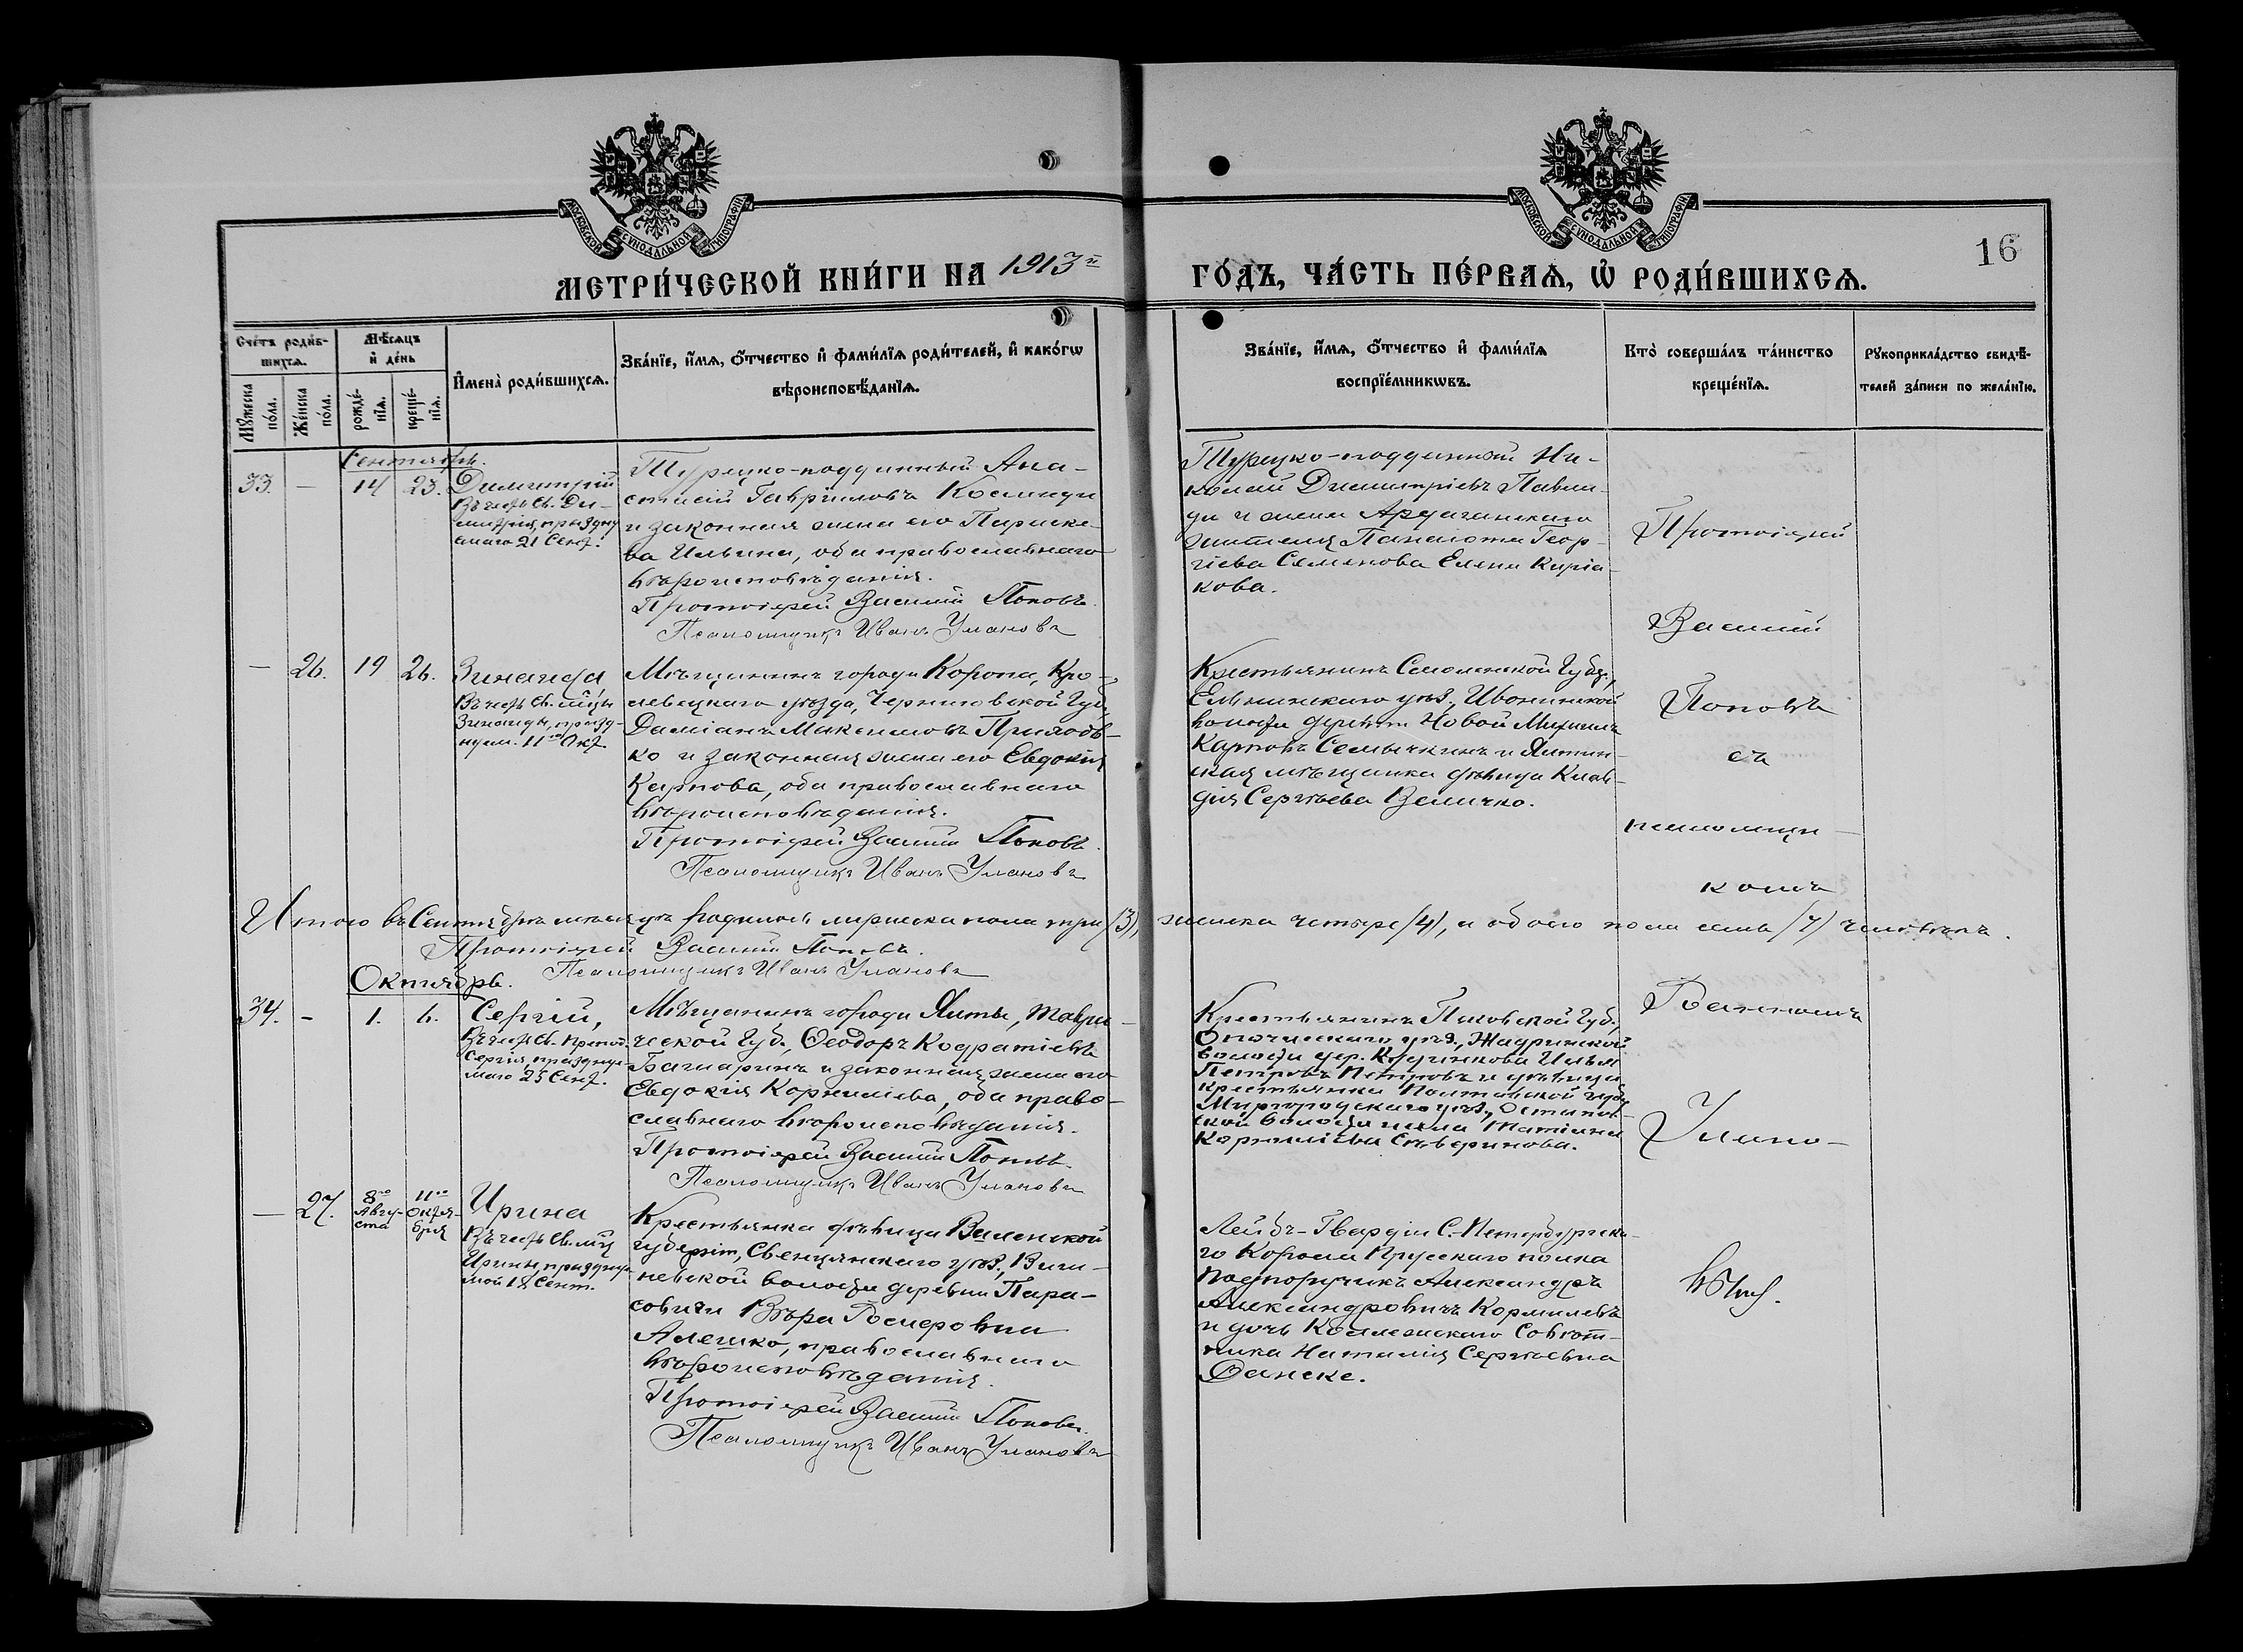 МОСКОВСКОЙ СѴНОДАЛЬНОЙ ТИПОГРАФІИ
МОСКОВСКОЙ СѴНОДАЛЬНОЙ ТИПОГРАФІИ
16
МЕТРИ́ЧЕСКОЙ КНИ́ГИ НА 1913й ГО́ДЪ, ЧА́СТЬ ПЕ́РВАѦ, Ѡ҆ РОДИ́ВШИХСѦ.
Счетъ роди́в-
шихсѧ.
Мѣ́сѧцъ
и҆ де́нь
Мꙋ́жеска
по́ла.
Же́нска
по́ла.
рожде́-
нїѧ.
креще́-
нїѧ.
И҆мена̀ роди́вшихсѧ.
Зва́нїе, и҆́мѧ, ѻ҆́тчество и҆ фами́лїѧ роди́телей, и҆ како́гѡ
вѣроисповѣ́данїѧ.
Зва́нїе, и҆́мѧ, ѻ҆́тчество и҆ фами́лїѧ
воспрїе́мникѡвъ.
Кто̀ соверша́лъ та́инство
креще́нїѧ.
Рꙋкоприкла́дство свидѣ́-
телей за́писи по жела́нїю.
Сентябрь.
33. — 14 23. Димитрій
Въ честь Св. Ди-
митрія, праздну
емаго 21 Сент.
Турецко-подданный Ана-
стасій Гавріиловъ Космиди
и законная жена его Параске-
ва Ильина, оба православнаго
вѣроисповѣданія.
Протоіерей Василій Поповъ.
Псаломщикъ Иванъ Улановъ
Турецко-подданный Ни-
колай Димитріевъ Павли-
ди и жена Ардаганскаго
жителя Панаіота Геор-
гіева Семенова Елена Киріа-
кова.
Протоіерей
Василій
Поповъ
съ
псаломщи-
комъ
Іоанномъ
Улано-
вымъ.
— 26. 19 26. Зинаида
Въ честь Св. мцы
Зинаиды, празд-
нуем. 11го Окт.
Мѣщанинъ города Коропа, Кро-
левецкаго уѣзда, Черниговской Губ.,
Даміанъ Максимовъ Приходь-
ко и законная жена его Евдокія
Карпова, оба православнаго
вѣроисповѣданія.
Протоіерей Василій Поповъ.
Псаломщикъ Иванъ Улановъ
Крестьянинъ Смоленской Губ.,
Ельнинскаго уѣз., Ивонинской
волости деревни Новой Михаилъ
Карповъ Семычкинъ и Ялтин-
ская мѣщанка дѣвица Клав-
дія Сергѣева Величко.
Итого въ Сентябрѣ мѣсяцѣ родилось мужеска пола три /3/, женска четыре /4/, и обоего пола семь /7/ человѣкъ.
Протоіерей Василій Поповъ.
Псаломщикъ Иванъ Улановъ
Октябрь.
34. — 1. 6. Сергій,
Въ честь Св. Препод.
Сергія, празднуе-
маго 25 Сент.
Мѣщанинъ города Ялты, Таври-
ческой Губ., Ѳеодоръ Кодратіевъ
Башаринъ и законная жена его
Евдокія Корниліева, оба право-
славнаго вѣроисповѣданія.
Протоіерей Василій Поповъ.
Псаломщикъ Иванъ Улановъ
Крестьянинъ Псковской Губ.,
Опочецкаго уѣз., Жадринской
волости дер. Илья
Петровъ Петровъ и дѣвица
крестьянка Полтавской губ.
Миргородскаго уѣз., Остапов-
ской волости и села Татіана
Корниліева Сѣверинова.
— 27. 8го Авгу- 11го Октя- Ирина
ста бря
Въ честь Св. мцы
Ирины, праздуе-
мой 18 Сент.
Крестьянка дѣвица Виленской
губерніи, Свенцянскаго уѣз., Виш-
невской волости деревни Пара-
совичи Вѣра
Алешко, православнаго
вѣроисповѣданія.
Протоіерей Василій Поповъ.
Псаломщикъ Иванъ Улановъ
Лейбъ-Гвардіи С.-Петербургска-
го Короля Прусскаго полка
Подпоручикъ Александръ
Александровичъ Кормилевъ
и дочь Коллежскаго Совѣт-
ника Наталія Сергѣевна
Данске.